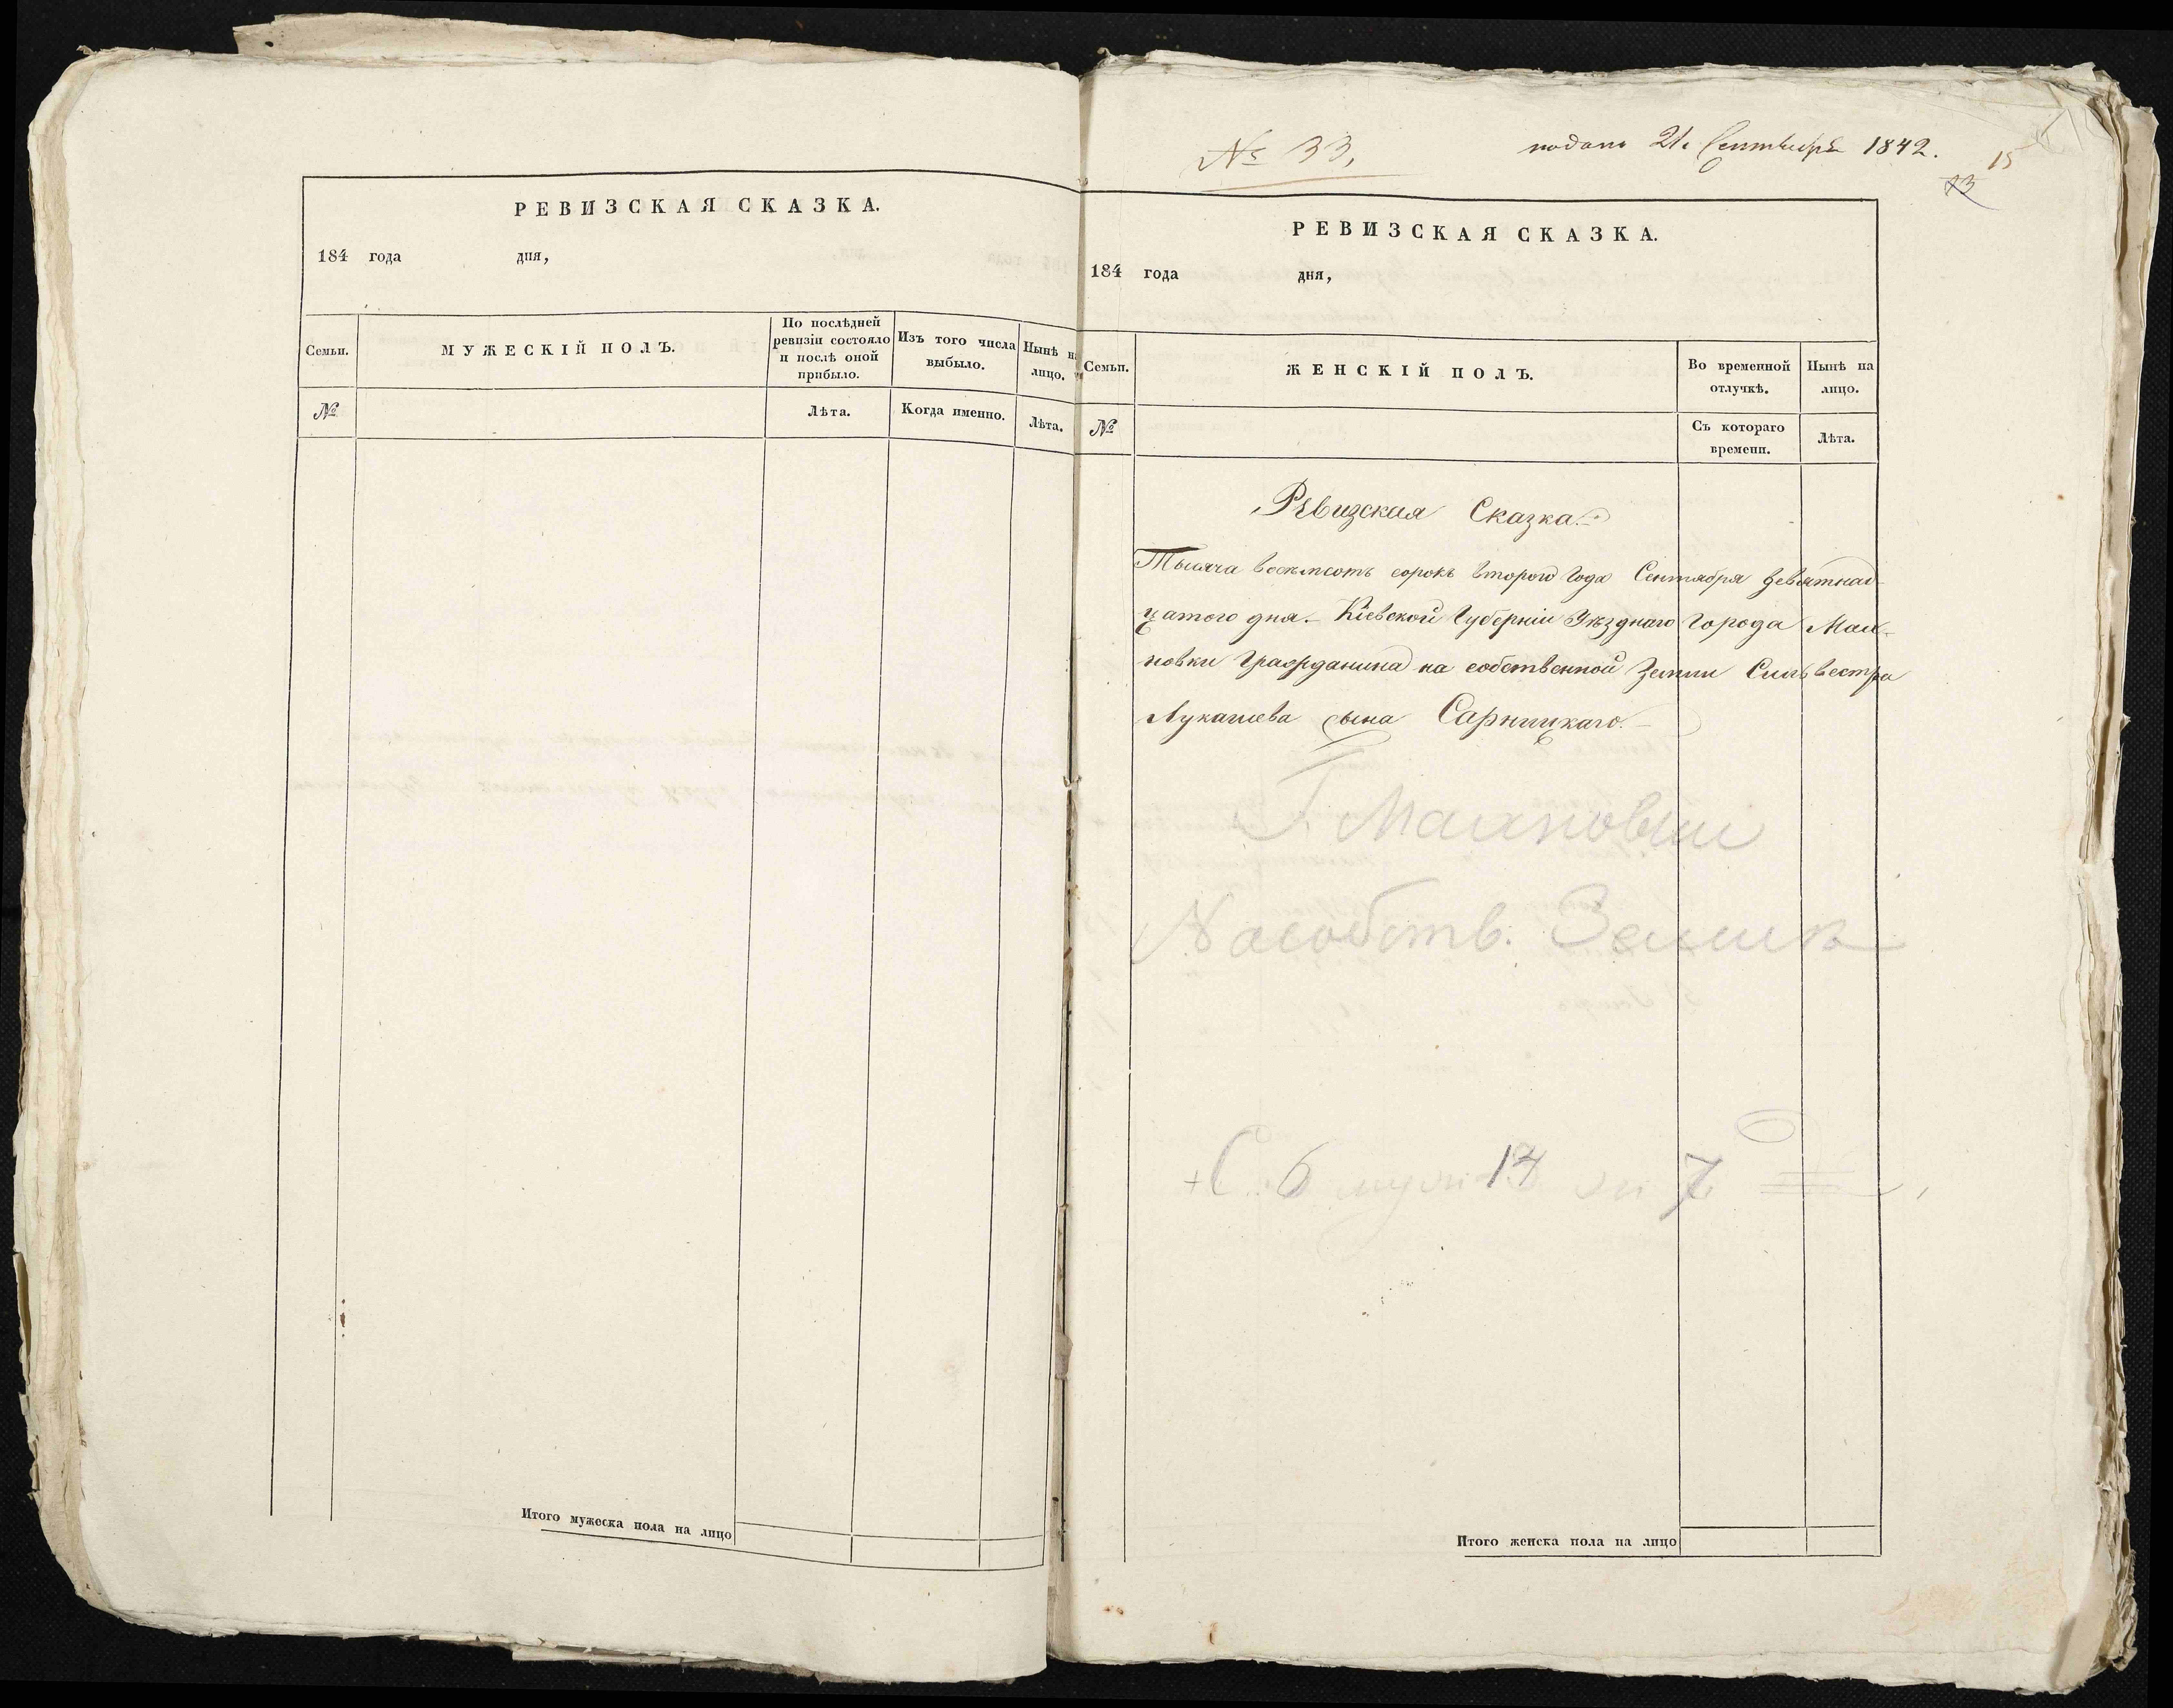 РЕВИЗСКАЯ СКАЗКА.
184 года дня,
Семьи.
МУЖЕСКІЙ ПОЛЪ.
По послѣдней ревизіи состояло и послѣ оной прибыло.
Изъ того числа выбыло.
Нынѣ на лицо.
№
Лѣта.
Когда именно.
Лѣта.
Итого мужеска пола на лицо
№ 33,
подана 21. Сентября 1842.
15
13
РЕВИЗСКАЯ СКАЗКА.
184 года дня,
Семьи.
ЖЕНСКІЙ ПОЛЪ.
Во временной отлучкѣ.
Нынѣ на лицо.
№
Съ котораго времени.
Лѣта.
Ревизская Сказка.
Тысяча восемьсотъ сорокъ втораго года Сентября девятнад-
цатого дня. Кіевской Губерніи Уѣзднаго города Мах-
новки Гражданина на собственной земли Сильвестра
Лукашева сына Сарницкаго.
Г. Махновки
На собств. Земли
С. 6 муж 17 7
Итого женска пола на лицо